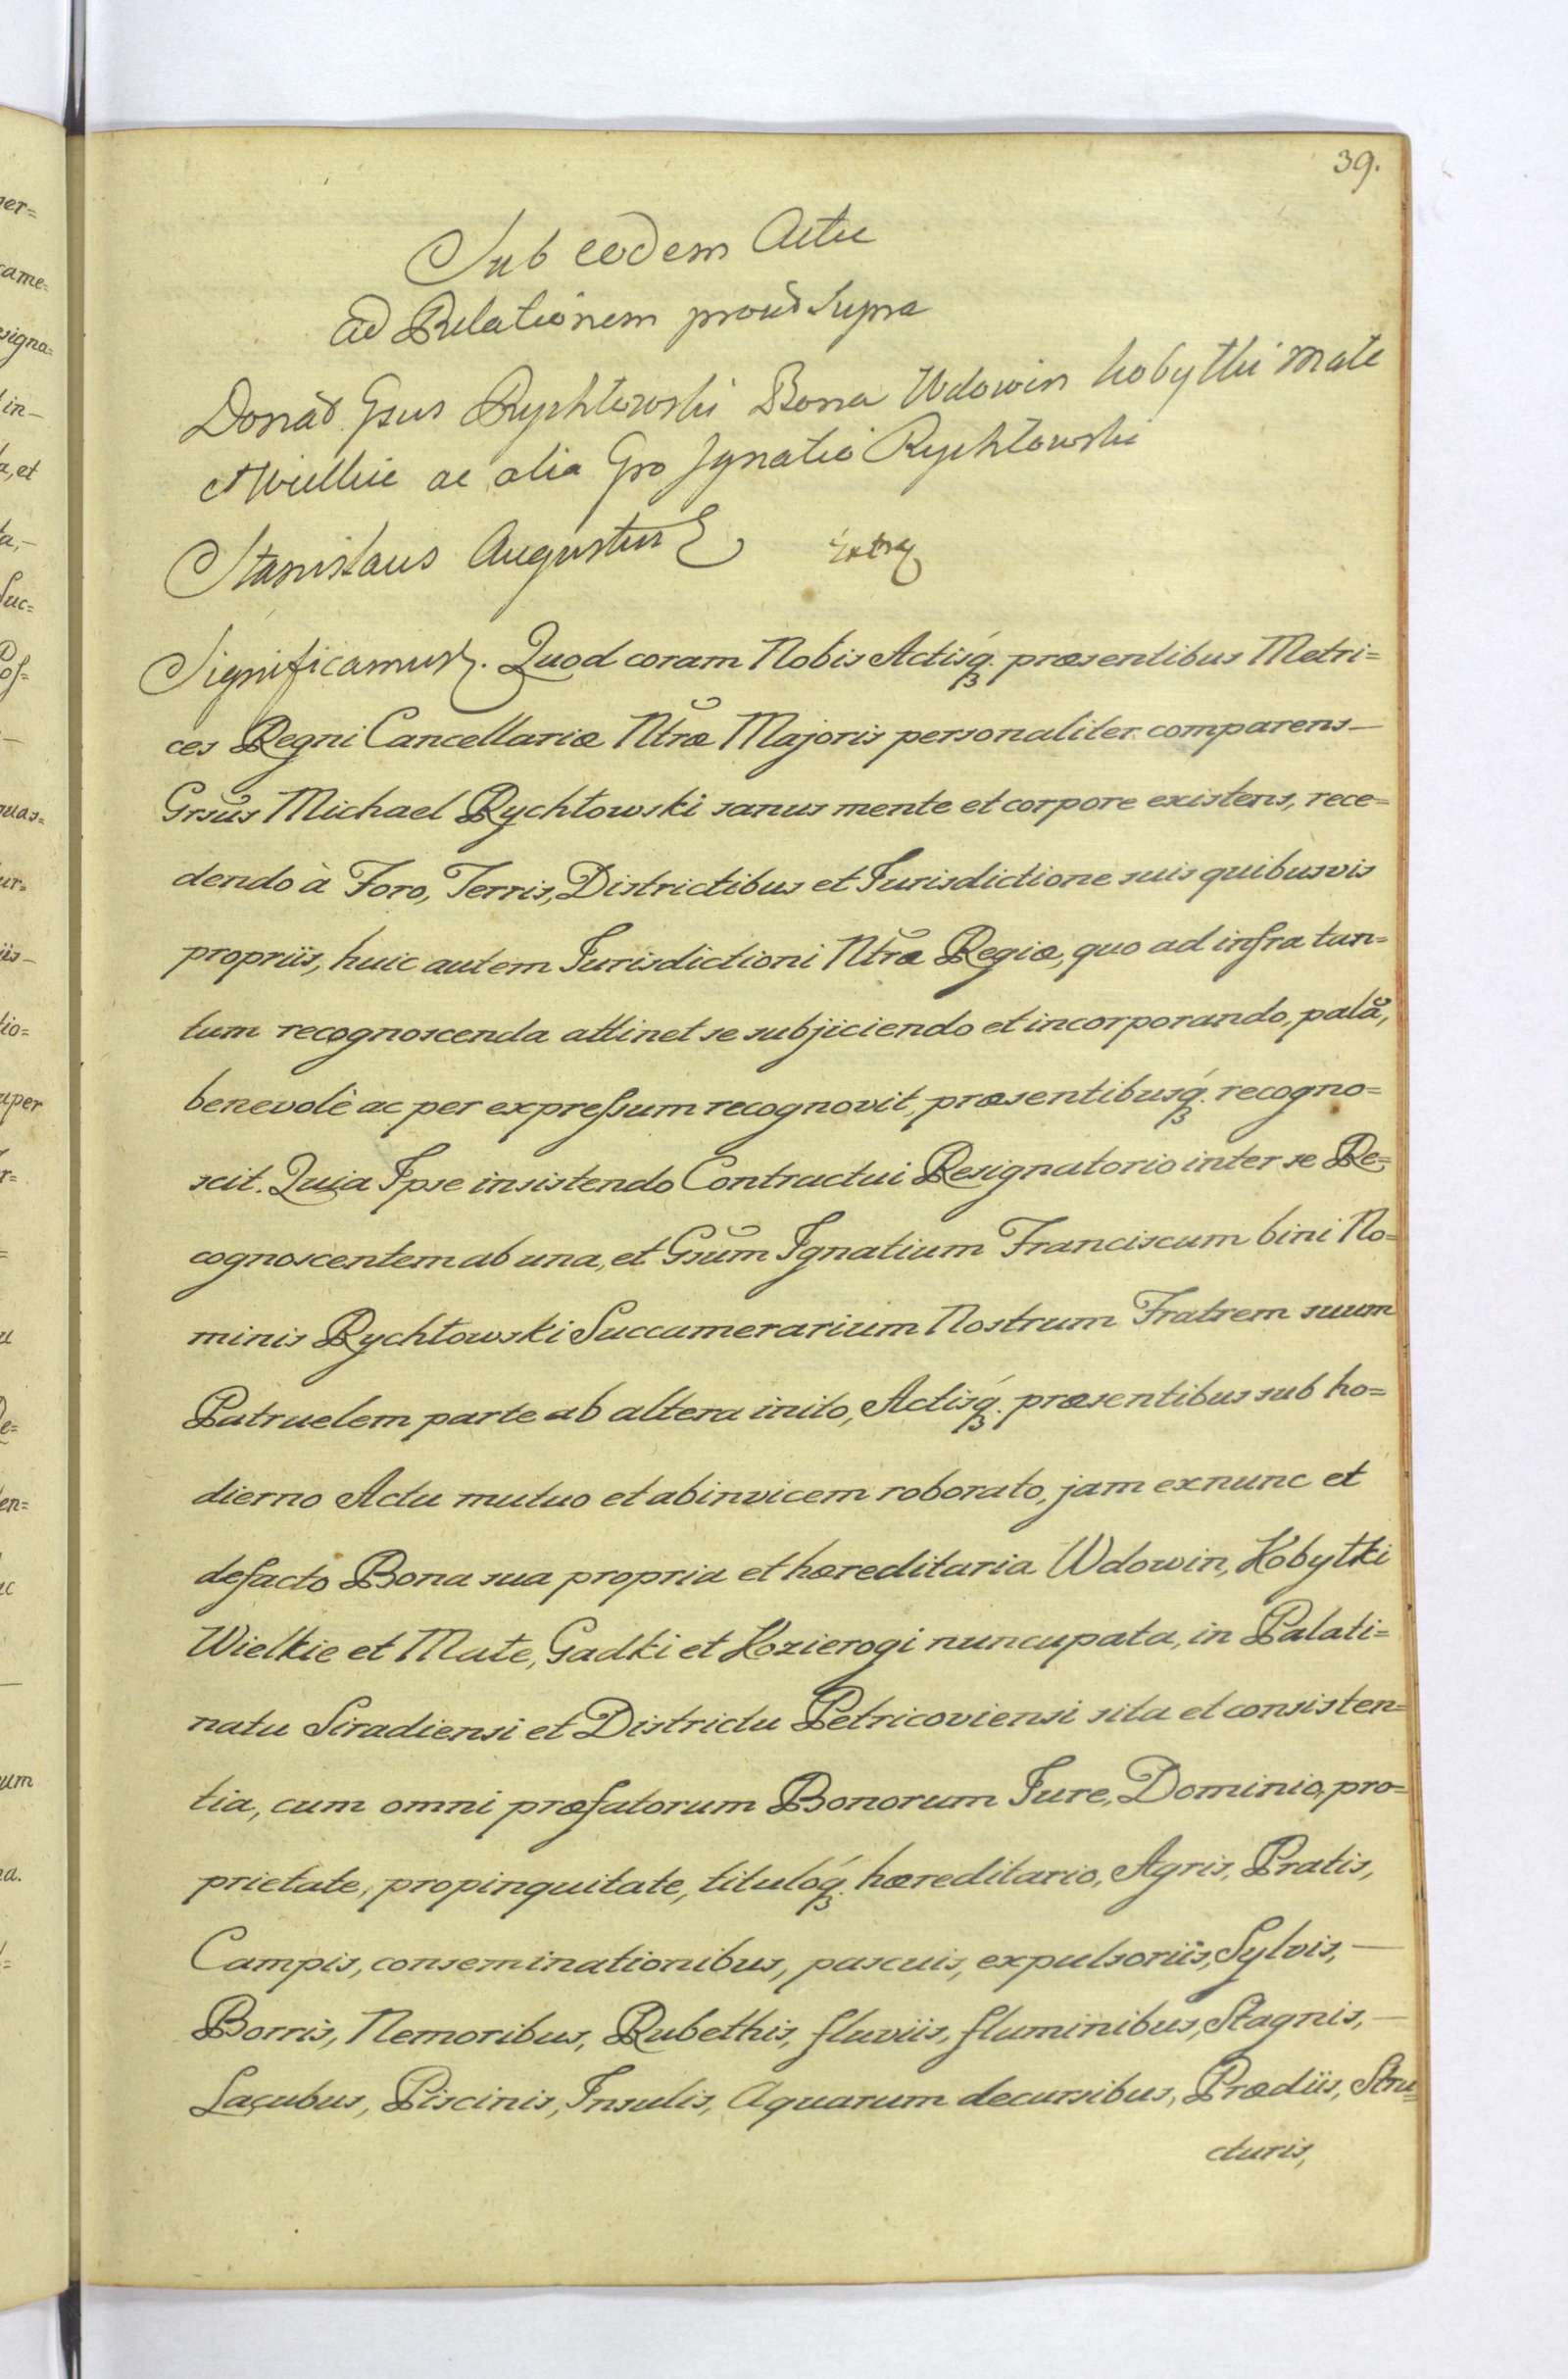 39.
Sub eodem Actu
ad Relationem prout Supra
Donat Gsus Rychłowski Bona Wdowin Kobyłki Małe
et Wielkie ac alia Gro Ignatio Rychłowski
Stanislaus Augustus
Significamus. Quod coram Nobis Actisq. præsentibus Metri=
ces Regni Cancellariæ Ntræ Majoris personaliter comparens —
Grsus Michael Rychłowski sanus mente et corpore existens, rece=
dendo à Foro, Terris, Districtibus et Jurisdictione suis quibusvis
propriis, huic autem Jurisdictioni Ntræ Regiæ, quo ad infra tan=
tum recognoscenda attinet se subjiciendo et incorporando, palã,
benevolè ac per expreſsum recognovit, præsentibusq. recogno=
scit. Quia Ipse insistendo Contractui Resignatorio inter se Re=
cognoscentem ab una, et Gsum Ignatium Franciscum bini No=
minis Rychłowski Succamerarium Nostrum Fratrem suum
Patruelem parte ab altera inito, Actisq. præsentibus sub ho=
dierno Actu mutuo et abinvicem roborato, jam exnunc et
defacto Bona sua propria et hæreditaria Wdowin, Kobyłki
Wielkie et Małe, Gadki et Kozierogi nuncupata, in Palati=
natu Siradiensi et Districtu Petricoviensi sita et consisten=
tia, cum omni præfatorum Bonorum Jure, Dominio, pro=
prietate, propinquitate, titulóq. hæreditario, Agris, Pratis,
Campis, conseminationibus, pascuis, expulsoriis, Sylvis, —
Borris, Nemoribus, Rubethis, fluviis, fluminibus, Stagnis, —
Lacubus, Piscinis, Insulis, Aquarum decursibus, Prædiis, Stru=
cturis,